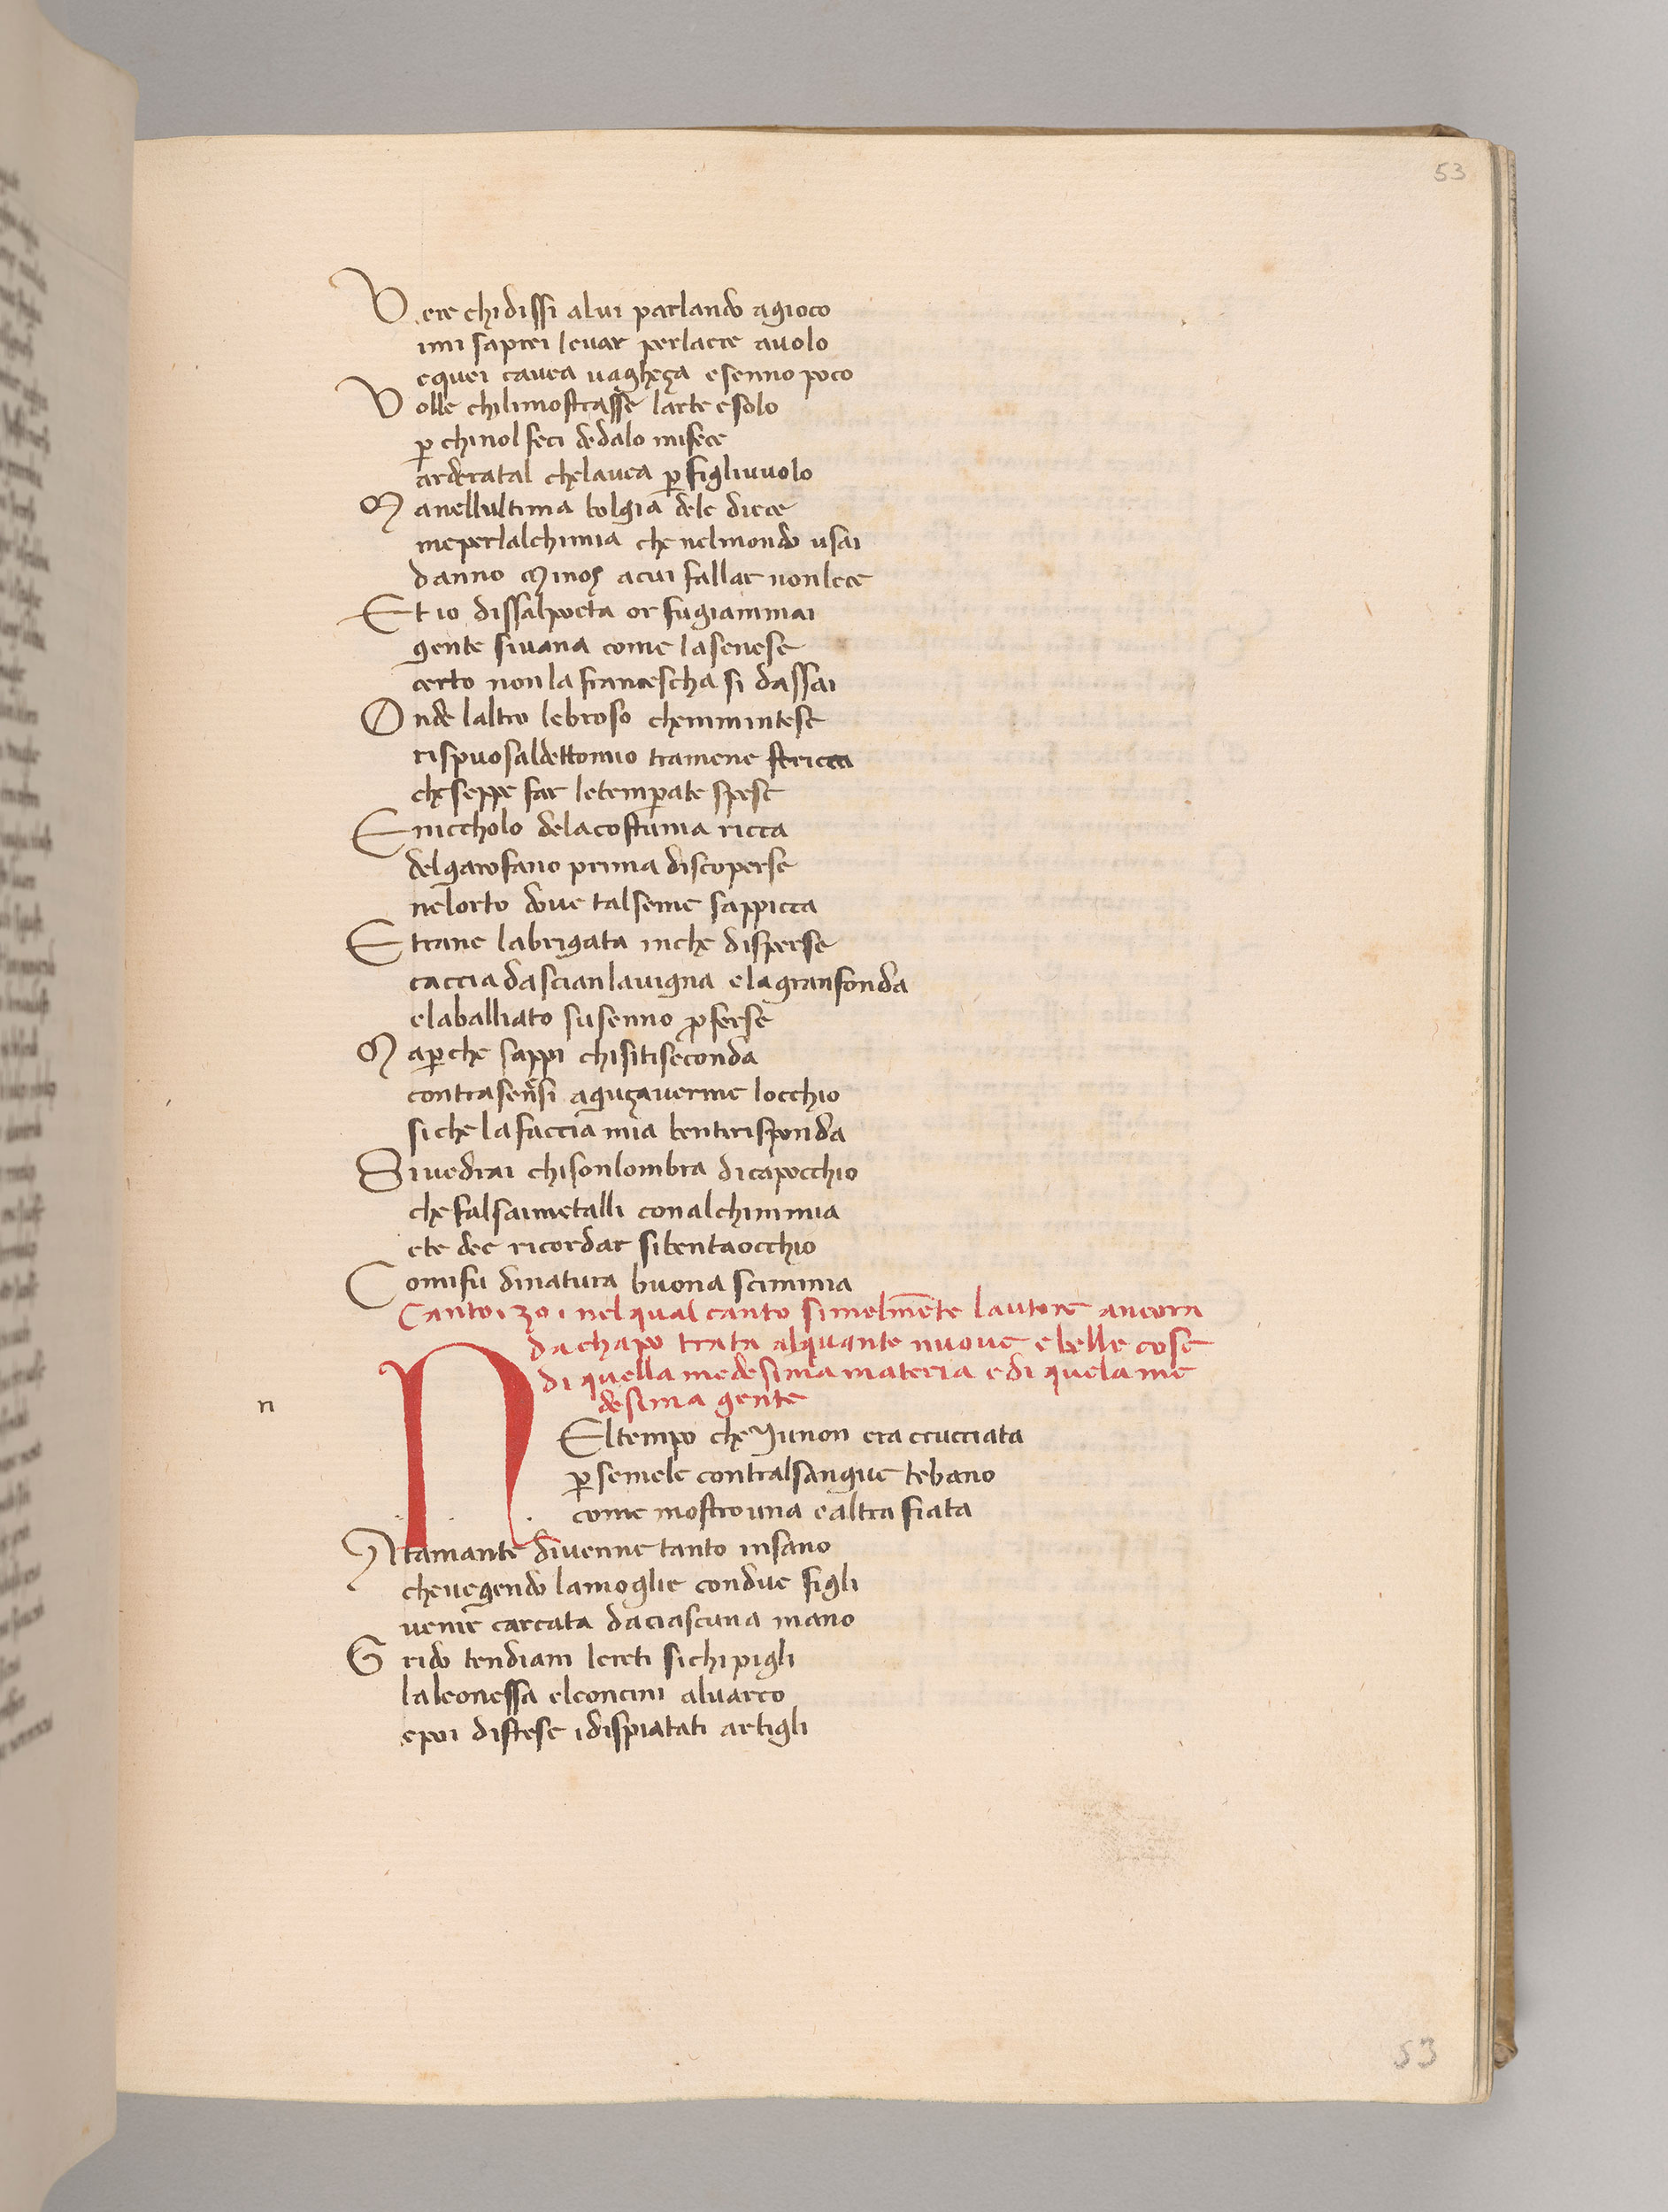 53
Vere chidissi alui parlando agioco
imi saprei levar perlaere avolo
equei cavea vagheça esenno poco
Volle chilimostrasse larte esolo
p̱ chinol feci dedalo mifece
arderatal chelavea p̱ figliuuolo
Manellultima bolgia dele diece
meperlalchimia che nelmondo usai
danno Minos acui fallar nonlece
Et io dissalpoeta or fugiammai
gente sivana come lasenese
certo nonla francescha si dassai
Onde laltro lebroso chemmintese
rispuosaldettomio tramene stricca
cheseppe far letemp̱ate spese
Eniccholo delacostuma ricca
delgarofano prima discoperse
nelorto dove talseme sappicca
Etrane labrigata inche disperse
caccia dascianlavigna elagranfonda
elaballiato susenno p̱ferse
Map̱che sappi chisitiseconda
contrasenesi aguçaverme locchio
siche lafaccia mia bentirisponda
Sivedrai chisonlombra dicapocchio
chefalsaimetalli conalchimmia
ete dee ricordar sibentaocchio
Comifu dinatura buona scimmia
Canto.30. nelqual canto similmēte lautore ancora
dachapo trata alquante nuove ebelle cose
di quella medesima materia edi quela me
desima gente
n
NEltempo che Junon era crucciata
p̱ semele contralsangue tebano
come mostrouna ealtra fiata
Atamante divenne tanto insano
chevegendo lamoglie condue figli
venire carcata daciascuna mano
Grido tendiam lereti sichi pigli
laleonessa eleoncini alvarco
epoi distese idispiatati artigli
53